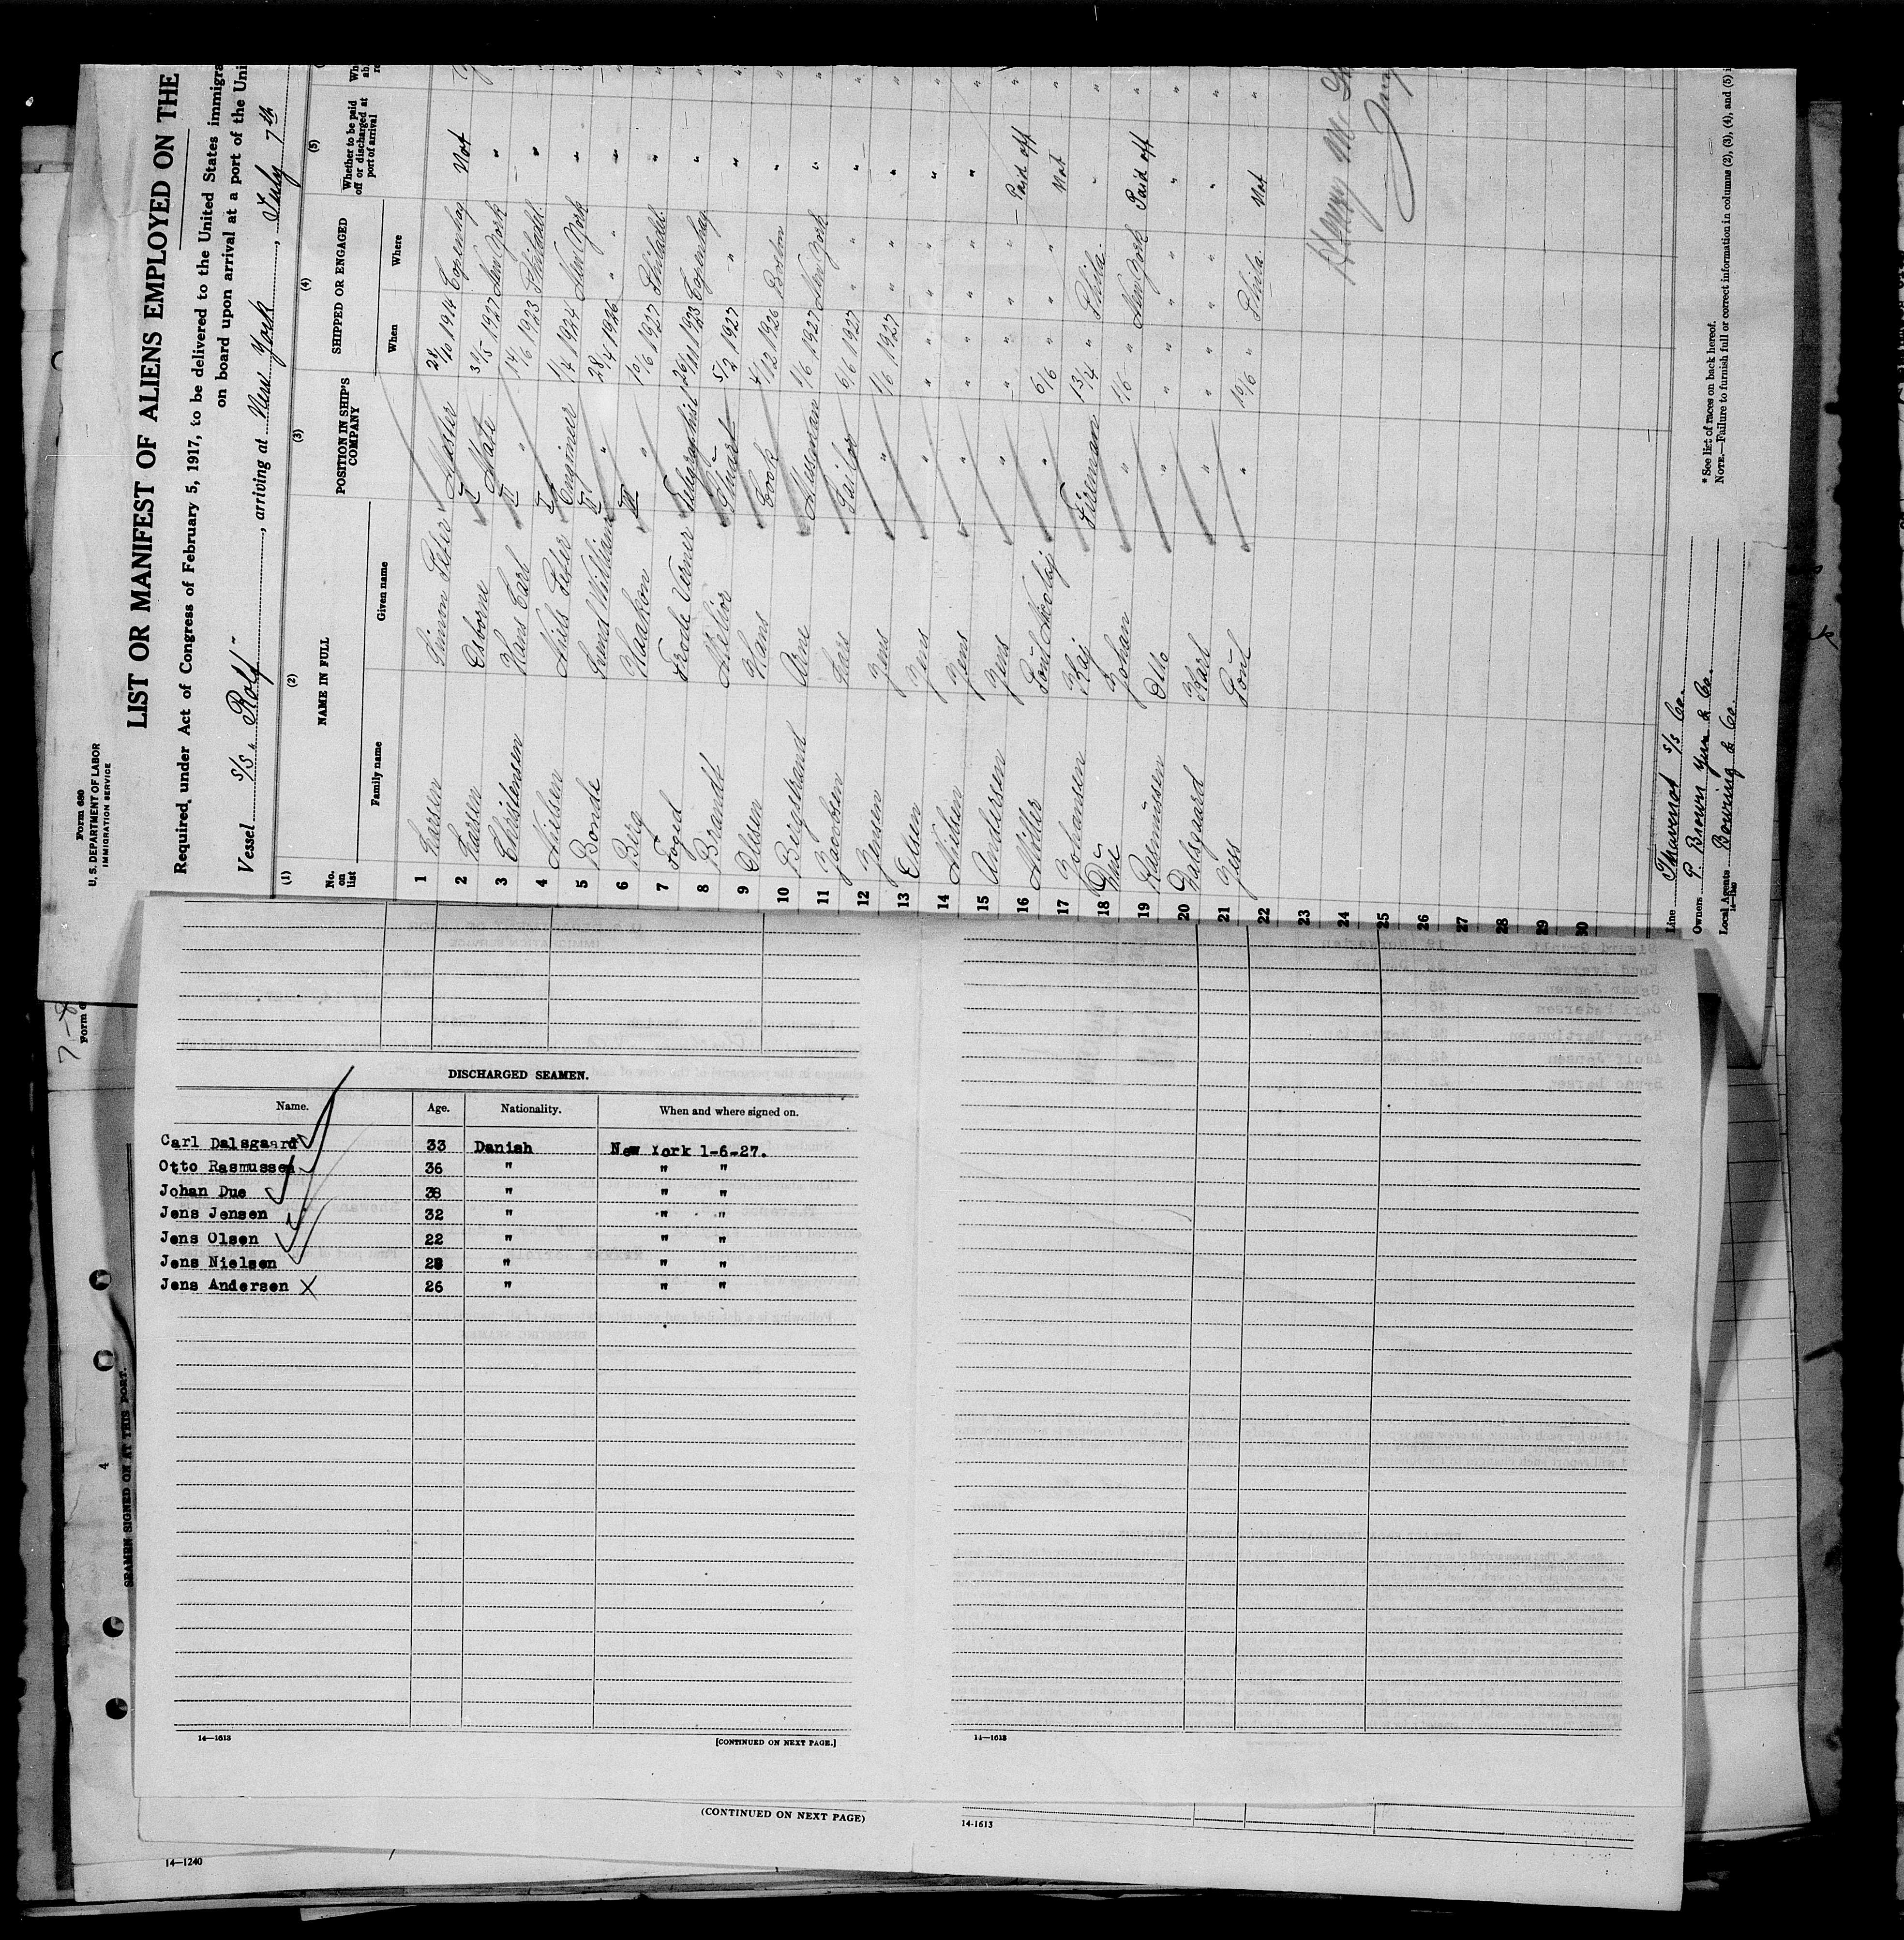 Form 680
U. S. DEPARTMENT OF LABOR
IMMIGRATION SERVICE
LIST OR MANIFEST OF ALIENS EMPLOYED ON THE
Required under Act of Congress of February 5, 1917, to be delivered to the United States immigra
on board upon arrival at a port of the Uni
Vessel S/S. "Rolf", arriving at New York, July 7th
(1) (2) (3) (4) (5)
No. on list NAME IN FULL POSITION IN SHIP'S COMPANY SHIPPED OR ENGAGED Whether to be paid off or discharged at port of arrival
Family name Given name When Where
1 Larsen Simon Peter Master 28/10 1914 Copenhag Not
2 Larsen Esborne I Mate 31/5 1927 New York "
3 Christensen Hans Carl II " 14/6 1923 Philadel "
4 Nielsen Niels Peter I Engineer 1/4 1924 New York "
5 Bonde Svend William II " 28/4 1926 " "
6 Berg Haakon III " 10/6 1927 Philadel "
7 Foged Frode Verner 26/11 1923 Copenhag "
8 Brandt Meliór Stuart 5/2 1927 " "
9 Olesen Hans Cook 4/12 1926 Boston "
10 Bergstrand Arne Messman 1/6 1927 New York "
11 Jacobsen Lars Sailor 6/6 1927 " "
12 Jensen Jens " 1/6 1927 " "
13 Olsen Jens " " " " "
14 Nielsen Jens " " " " "
15 Andersen Jens " " " " Paid off
16 Möller Poul Nicolaj " 6/6 " " Not
17 Johansen Kaj Fireman 13/4 " Phila. "
18 Due Johan " 1/6 " New York Paid off
19 Rasmussen Otto " " " " "
20 Dalsgaard Karl " " " " "
21 Jess Poul " 10/6 " Phila. Not
22
23
24
25
26
27
28
29
30
Henry M.
Line S/S Co.
Owners P. Brown Jun & Co.
Local Agents Bowring & Co.
14—1240
*See list of races on back hereof.
NOTE.—Failure to furnish full or correct information in columns (2), (3), (4), and (5) i
7-8
Form 6
DISCHARGED SEAMEN.
Name. Age. Nationality. When and where signed on.
Carl Dalsgaard 33 Danish New York 1-6-27.
Otto Rasmussen 36 " " "
Johan Due 38 " " "
Jens Jensen 32 " " "
Jens Olsen 22 " " "
Jens Nielsen 28 " " "
Jens Andersen X 26 " " "
4
SEAMEN SIGNED ON AT THIS PORT.
14—1613 [CONTINUED ON NEXT PAGE.] 14—1613
(CONTINUED ON NEXT PAGE) 14-1613
14—1240